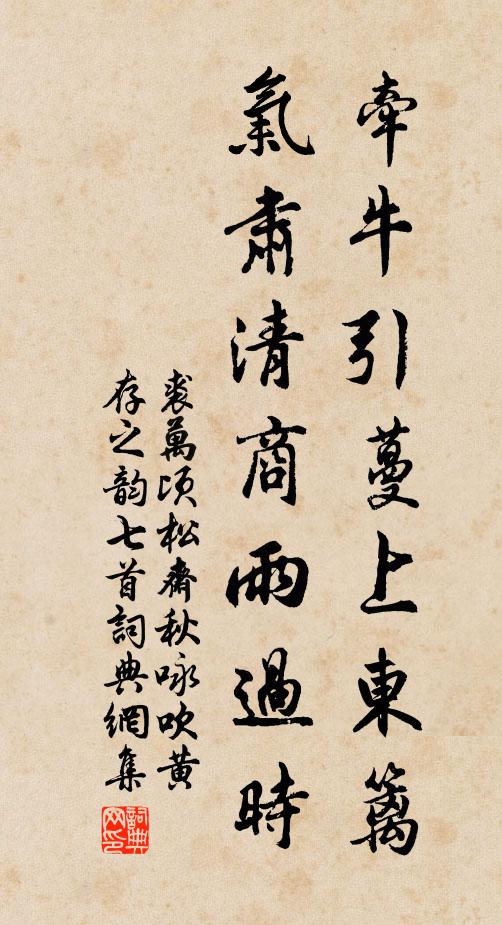 牽牛引蔓上東籬
氣肅清商雨過時
裘萬頃松齋秋咏吹黃
存之韵七首詞典網集
詞典网印